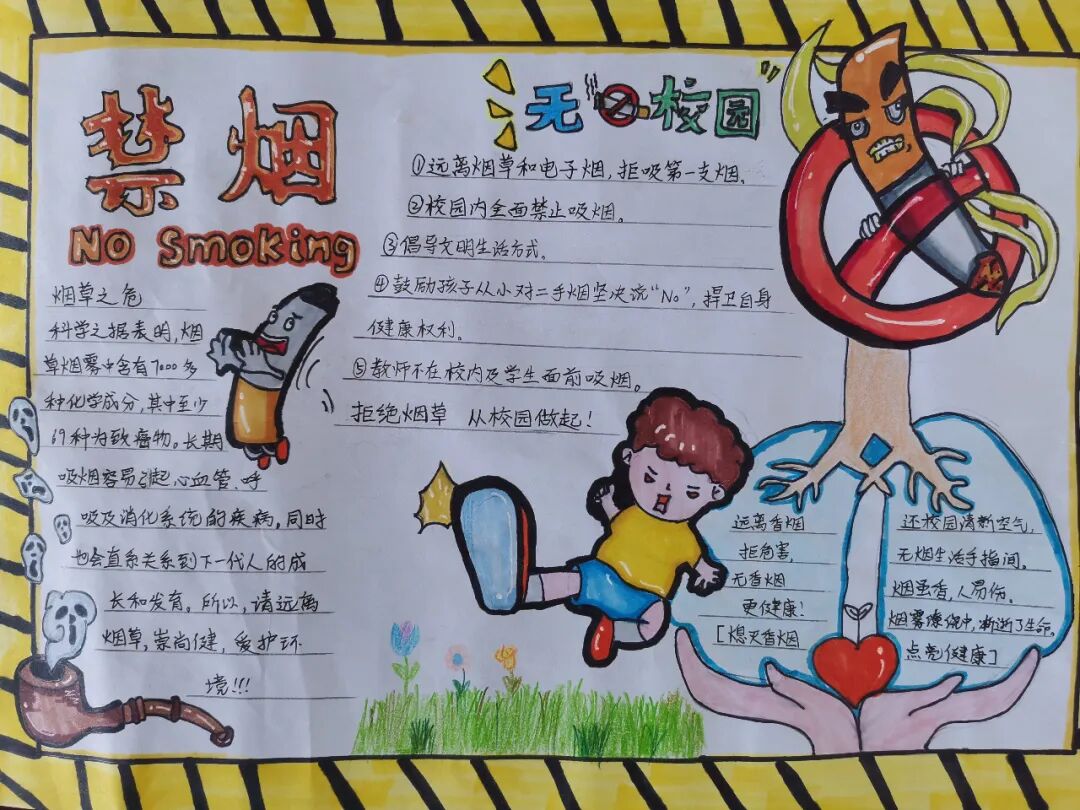 禁烟
No Smoking
烟草之危
科学之据表明,烟
草烟雾中含有7000多
种化学成分,其中至少
69种为致癌物。长期
吸烟容易引起心血管、呼
吸及消化系统的疾病,同时
也会直系关系到下一代人的成
长和发育。所以,请远离
烟草,崇尚健,爱护环
境!!!
无 校园
①远离烟草和电子烟,拒吸第一支烟。
②校园内全面禁止吸烟。
③倡导文明生活方式。
④鼓励孩子从小对二手烟坚决说“No”,捍卫自身
健康权利。
⑤教师不在校内及学生面前吸烟。
拒绝烟草 从校园做起!
远离香烟
拒危害,
无香烟
更健康!
[熄灭香烟
还校园清新空气,
无烟生活手指间。
烟虽香,人易伤。
烟雾缭绕中,渐逝了生命。
点亮健康]